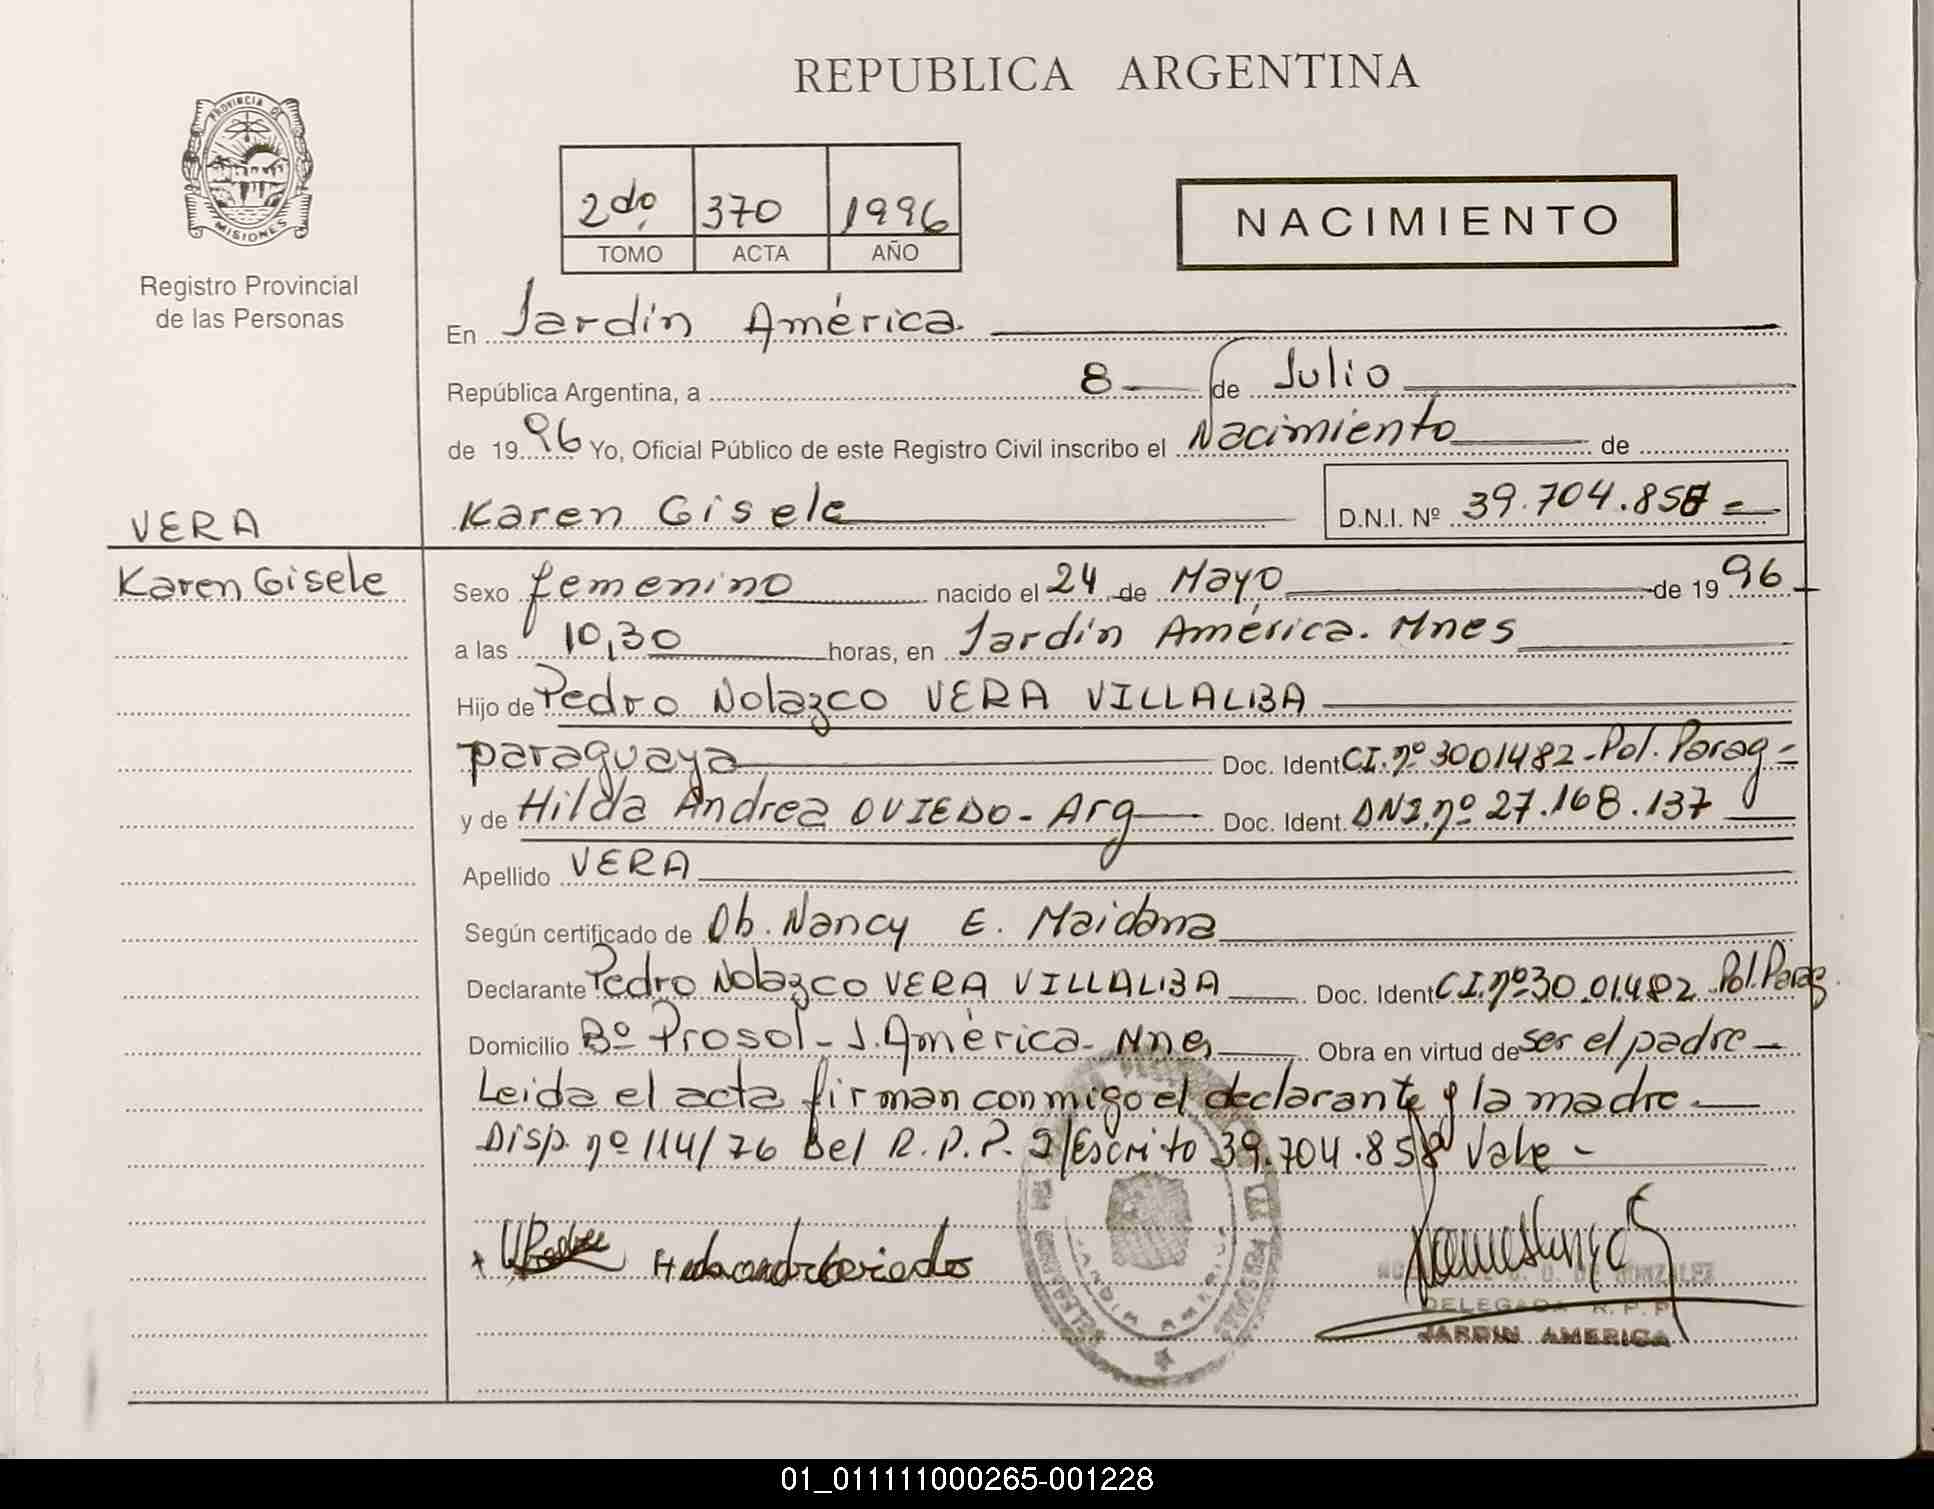 REPUBLICA ARGENTINA
PROVINCIA DE
MISIONES
Registro Provincial
de las Personas
2do 370 1996
TOMO ACTA AÑO
NACIMIENTO
En Jardín América.
República Argentina, a 8 de Julio
de 1996 Yo, Oficial Público de este Registro Civil inscribo el Nacimiento de
VERA
Karen Gisele
Karen Gisele D.N.I. Nº 39.704.858
Sexo femenino nacido el 24 de Mayo de 1996
a las 10,30 horas, en Jardín América. Mnes
Hijo de Pedro Nolazco VERA VILLALBA
paraguaya Doc. Ident CI. nº 3001482 - Pol. Parag -
y de Hilda Andrea OVIEDO - Arg Doc. Ident. DNI. nº 27.168.137
Apellido VERA
Según certificado de Ob. Nancy E. Maidana
Declarante Pedro Nolazco VERA VILLALBA Doc. Ident CI. nº 30.01.482 Pol. Parag
Domicilio Bº Prosol - J. América - Mnes Obra en virtud de ser el padre -
Leida el acta firman conmigo el declarante y la madre -
Disp. nº 114/76 Del R.P.P. S/Escrito 39.704.858 Vale -
DE GONZALEZ
DELEGADA R. P. P.
JARDIN AMERICA
JARDIN AMERICA
01_011111000265-001228